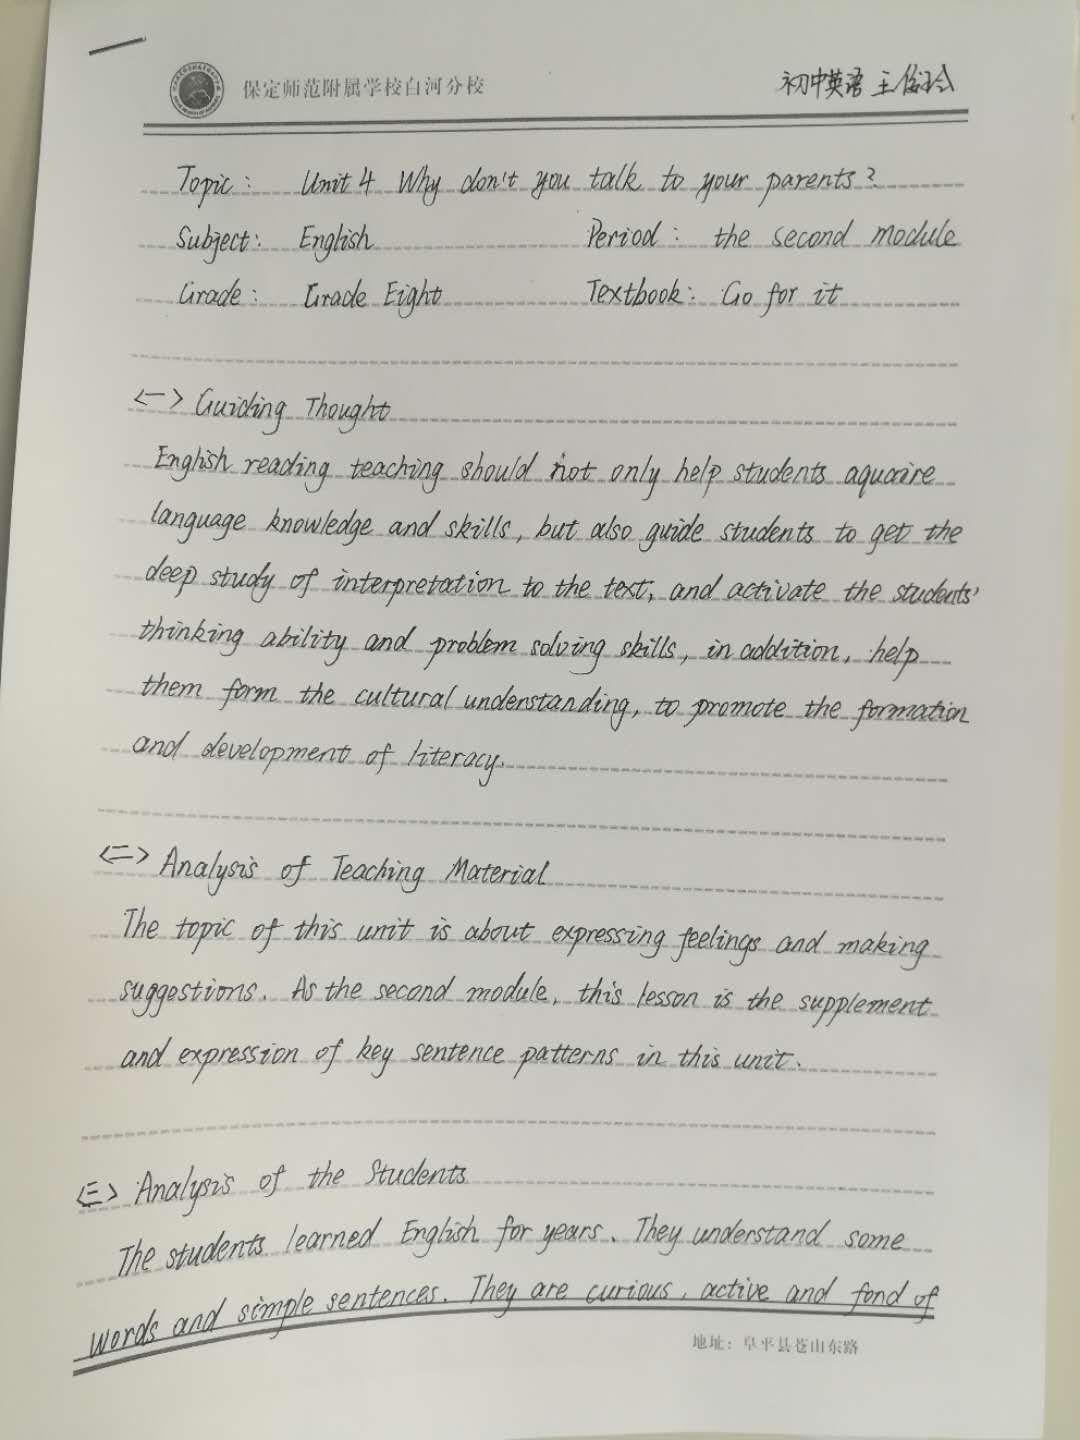 保定师范附属学校白河分校
初中英语 王俊玲
Topic: Unit 4 Why don't you talk to your parents?
Subject: English Period: the second module
Grade: Grade Eight Textbook: Go for it
<一> Guiding Thought
English reading teaching should not only help students aquaire
language knowledge and skills, but also guide students to get the
deep study of interpretation to the text, and activate the students'
thinking ability and problem solving skills, in addition, help
them form the cultural understanding, to promote the formation
and development of literacy.
<二> Analysis of Teaching Material
The topic of this unit is about expressing feelings and making
suggestions. As the second module, this lesson is the supplement
and expression of key sentence patterns in this unit.
<三> Analysis of the Students
The students learned English for years. They understand some
words and simple sentences. They are curious, active and fond of
地址：阜平县苍山东路